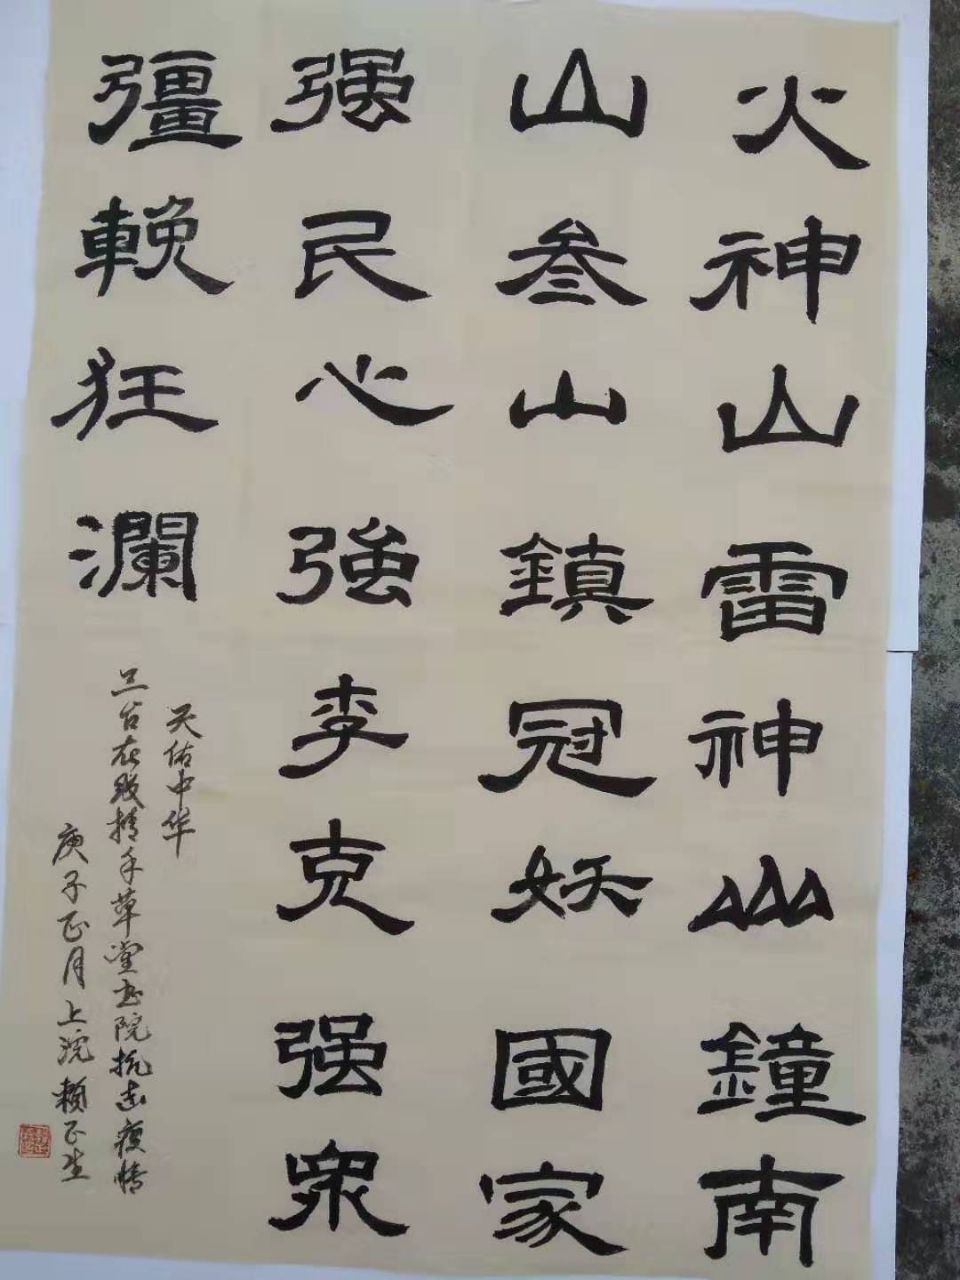 火神山雷神山鐘南
山叁山鎮冠妖國家
强民心強李克强衆
彊輓狂瀾
天佑中华
三台在线携手草堂书院抗击疫情
庚子正月上浣赖正生